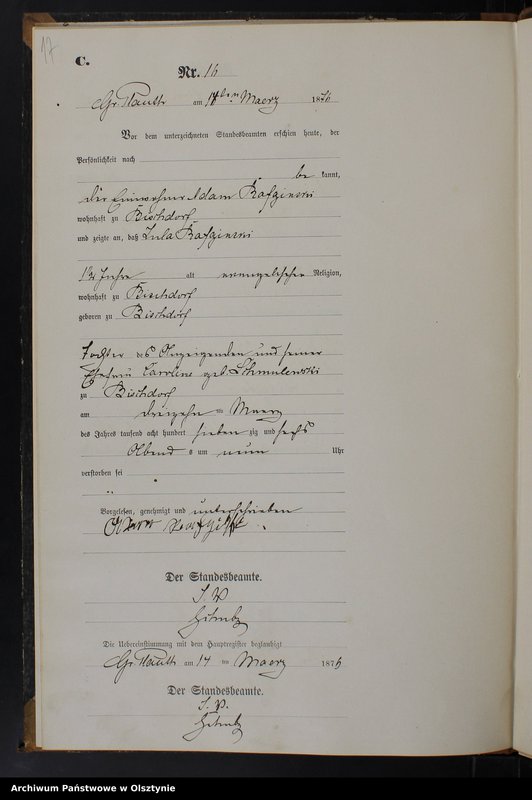 17
C.
Nr. 16
Gr. Plauth am 14ten Maerz 1876
Vor dem unterzeichneten Standesbeamten erschien heute, der
Persönlichkeit nach
be kannt,
der Einwohner Adam
wohnhaft zu Bischdorf
und zeigte an, daß Jula
1¾ Jahre alt evangelischer Religion,
wohnhaft zu Bischdorf
geboren zu Bischdorf
Tochter des Anzeigenden und seiner
Ehefrau Caroline geb. Schmulewski
zu Bischdorf
am dreizehn ten Maerz
des Jahres tausend acht hundert sieben zig und sechs
Abend s um neun Uhr
verstorben sei
Vorgelesen, genehmigt und unterschrieben
Adam
Der Standesbeamte.
I. V.
Die Uebereinstimmung mit dem Hauptregister beglaubigt
Gr. Plauth am 14 ten Maerz 1876
Der Standesbeamte.
I. V.
Archiwum Państwowe w Olsztynie